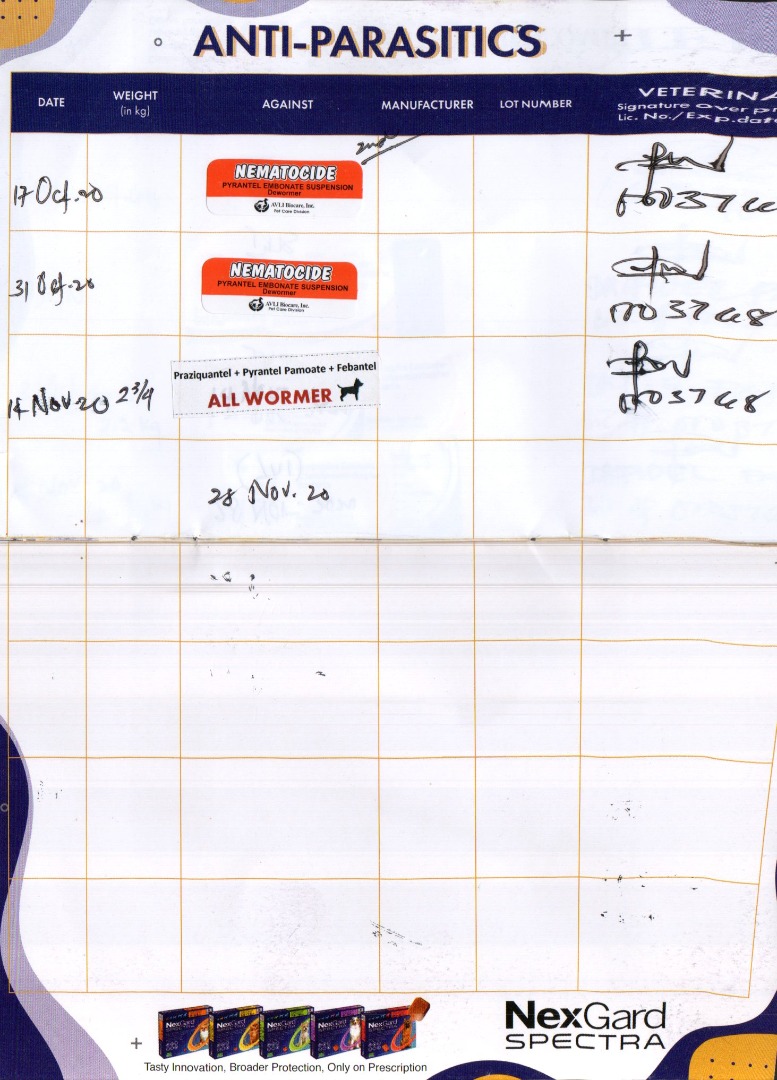 ANTI-PARASITICS
DATE WEIGHT (in kg) AGAINST MANUFACTURER LOT NUMBER VETERINA
Signature over p
Lic. No./Exp.dat
2nd
17 Oct.20
NEMATOCIDE
PYRANTEL EMBONATE SUSPENSION
Dewormer
AVLI Biocare, Inc.
Pet Care Division
31 Oct.20
NEMATOCIDE
PYRANTEL EMBONATE SUSPENSION
Dewormer
AVLI Biocare, Inc.
Pet Care Division
14 Nov.20 2 3/4
Praziquantel + Pyrantel Pamoate + Febantel
ALL WORMER
28 Nov. 20
NexGard NexGard NexGard NexGard NexGard
Tasty Innovation, Broader Protection, Only on Prescription
NexGard
SPECTRA